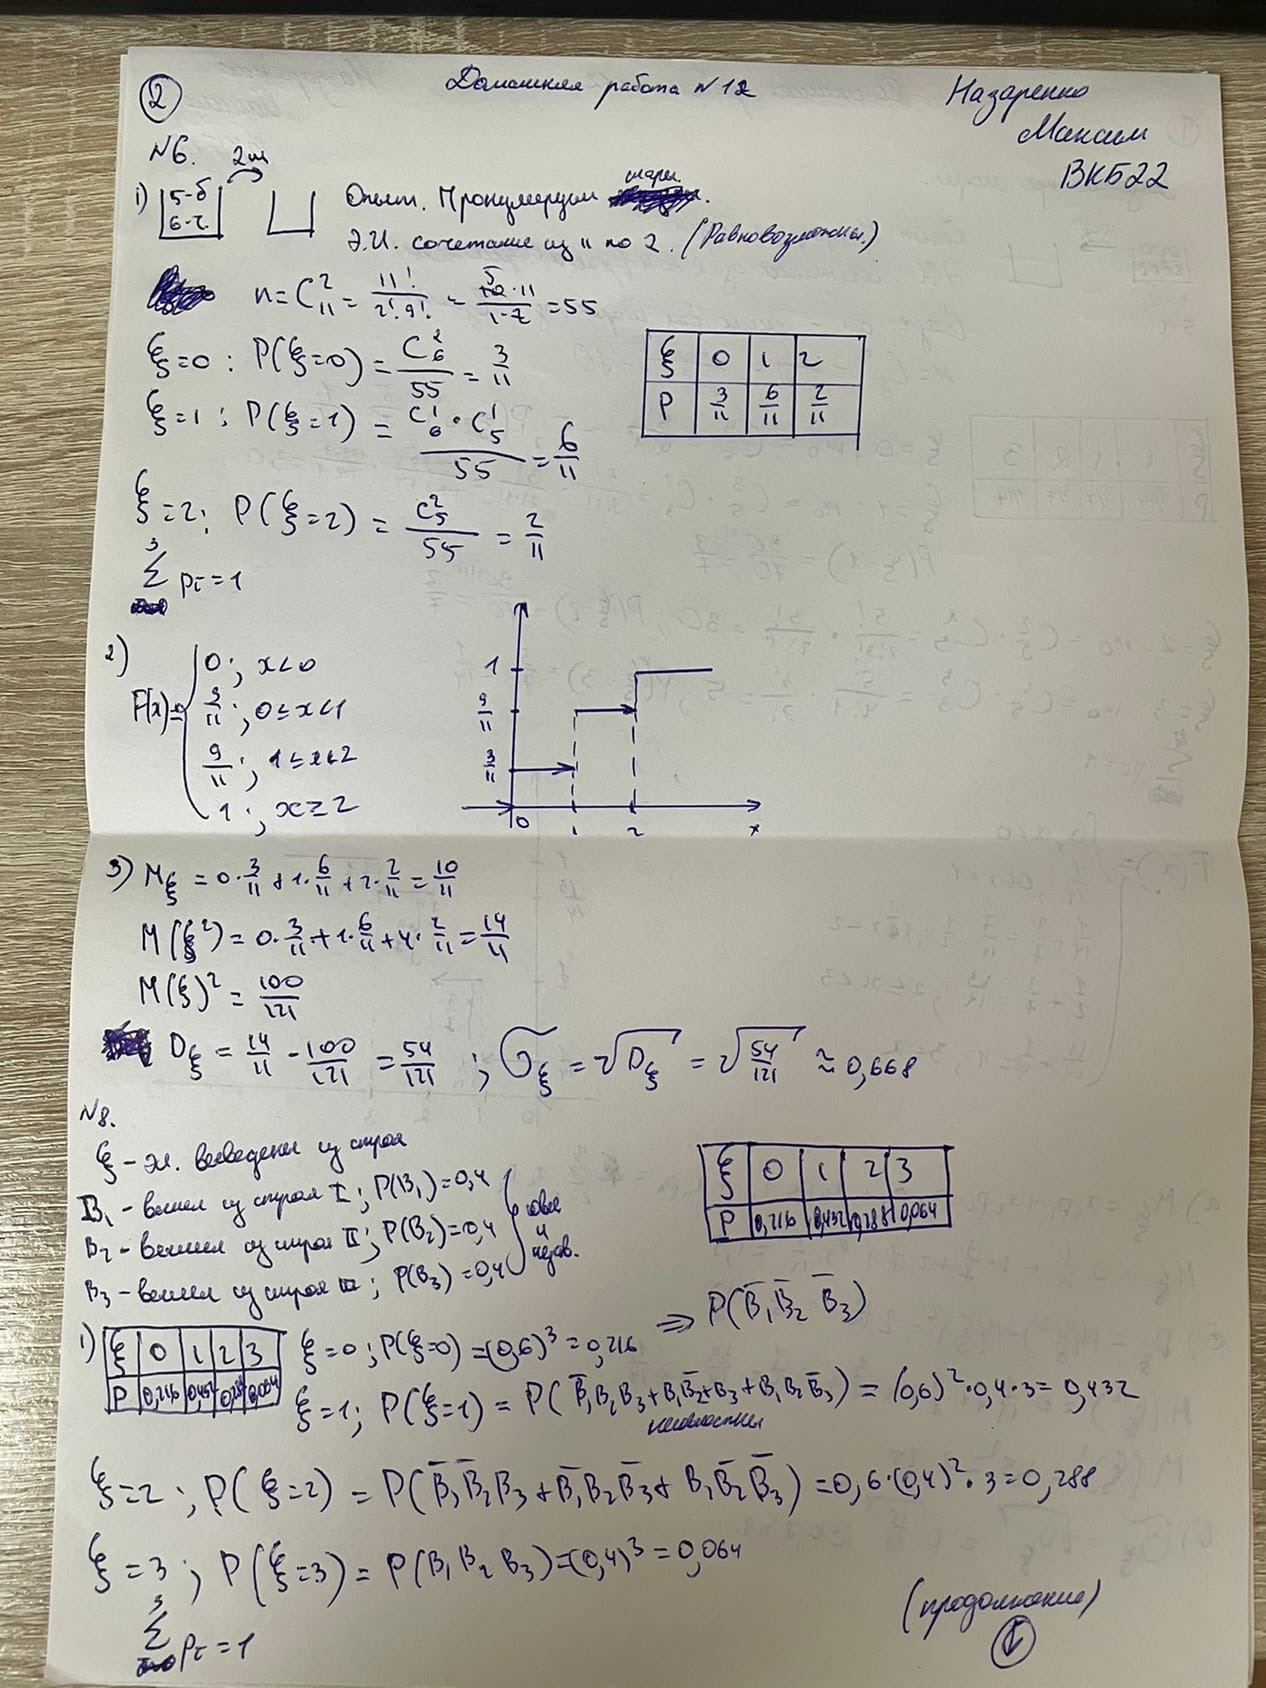 ②
Домашняя работа №12
Назаренко
Максим
ВКБ22
№6.
2ш
1) 5-б
6-ч.
Опыт. Пронумеруем шары.
Э.И. сочетание из 11 по 2. (Равновозможны.)
n = C₁₁² = 11!/(2!·9!) = (10·11)/(1·2) = 55
5
ξ=0 : P(ξ=0) = C₆²/55 = 3/11
ξ | 0 | 1 | 2
P | 3/11 | 6/11 | 2/11
ξ=1 ; P(ξ=1) = (C₆¹·C₅¹)/55 = 6/11
ξ=2; P(ξ=2) = C₅²/55 = 2/11
3
Σ pᵢ = 1
2)
F(x)= { 0; x<0
3/11; 0≤x<1
9/11; 1≤x<2
1; x≥2
1
9/11
3/11
0 1 2 x
3) Mξ = 0·3/11 + 1·6/11 + 2·2/11 = 10/11
M(ξ²) = 0·3/11 + 1·6/11 + 4·2/11 = 14/11
M(ξ)² = 100/121
Dξ = 14/11 - 100/121 = 54/121 ; σξ = √Dξ = √(54/121) ≈ 0,668
№8.
ξ - эл. выведены из строя
B₁ - вышел из строя I ; P(B₁)=0,4
B₂ - вышел из строя II ; P(B₂)=0,4
B₃ - вышел из строя III ; P(B₃)=0,4
и незав.
ξ | 0 | 1 | 2 | 3
P | 0,216 | 0,432 | 0,288 | 0,064
⇒ P(B̄₁B̄₂ B̄₃)
1) ξ | 0 | 1 | 2 | 3
P | 0,216 | 0,288 | 0,064
ξ=0 ; P(ξ=0) = (0,6)³ = 0,216
ξ=1; P(ξ=1) = P(B̄₁B₂B₃ + B₁B̄₂+B₃ + B₁B₂B̄₃) = (0,6)²·0,4·3 = 0,432
ξ=2 ; P(ξ=2) = P(B̄₁B̄₂B₃ + B̄₁B₂B̄₃ + B₁B̄₂B̄₃) = 0,6·(0,4)²·3 = 0,288
ξ=3 ; P(ξ=3) = P(B₁B₂B₃) = (0,4)³ = 0,064
3
Σ pᵢ = 1
(продолжение)